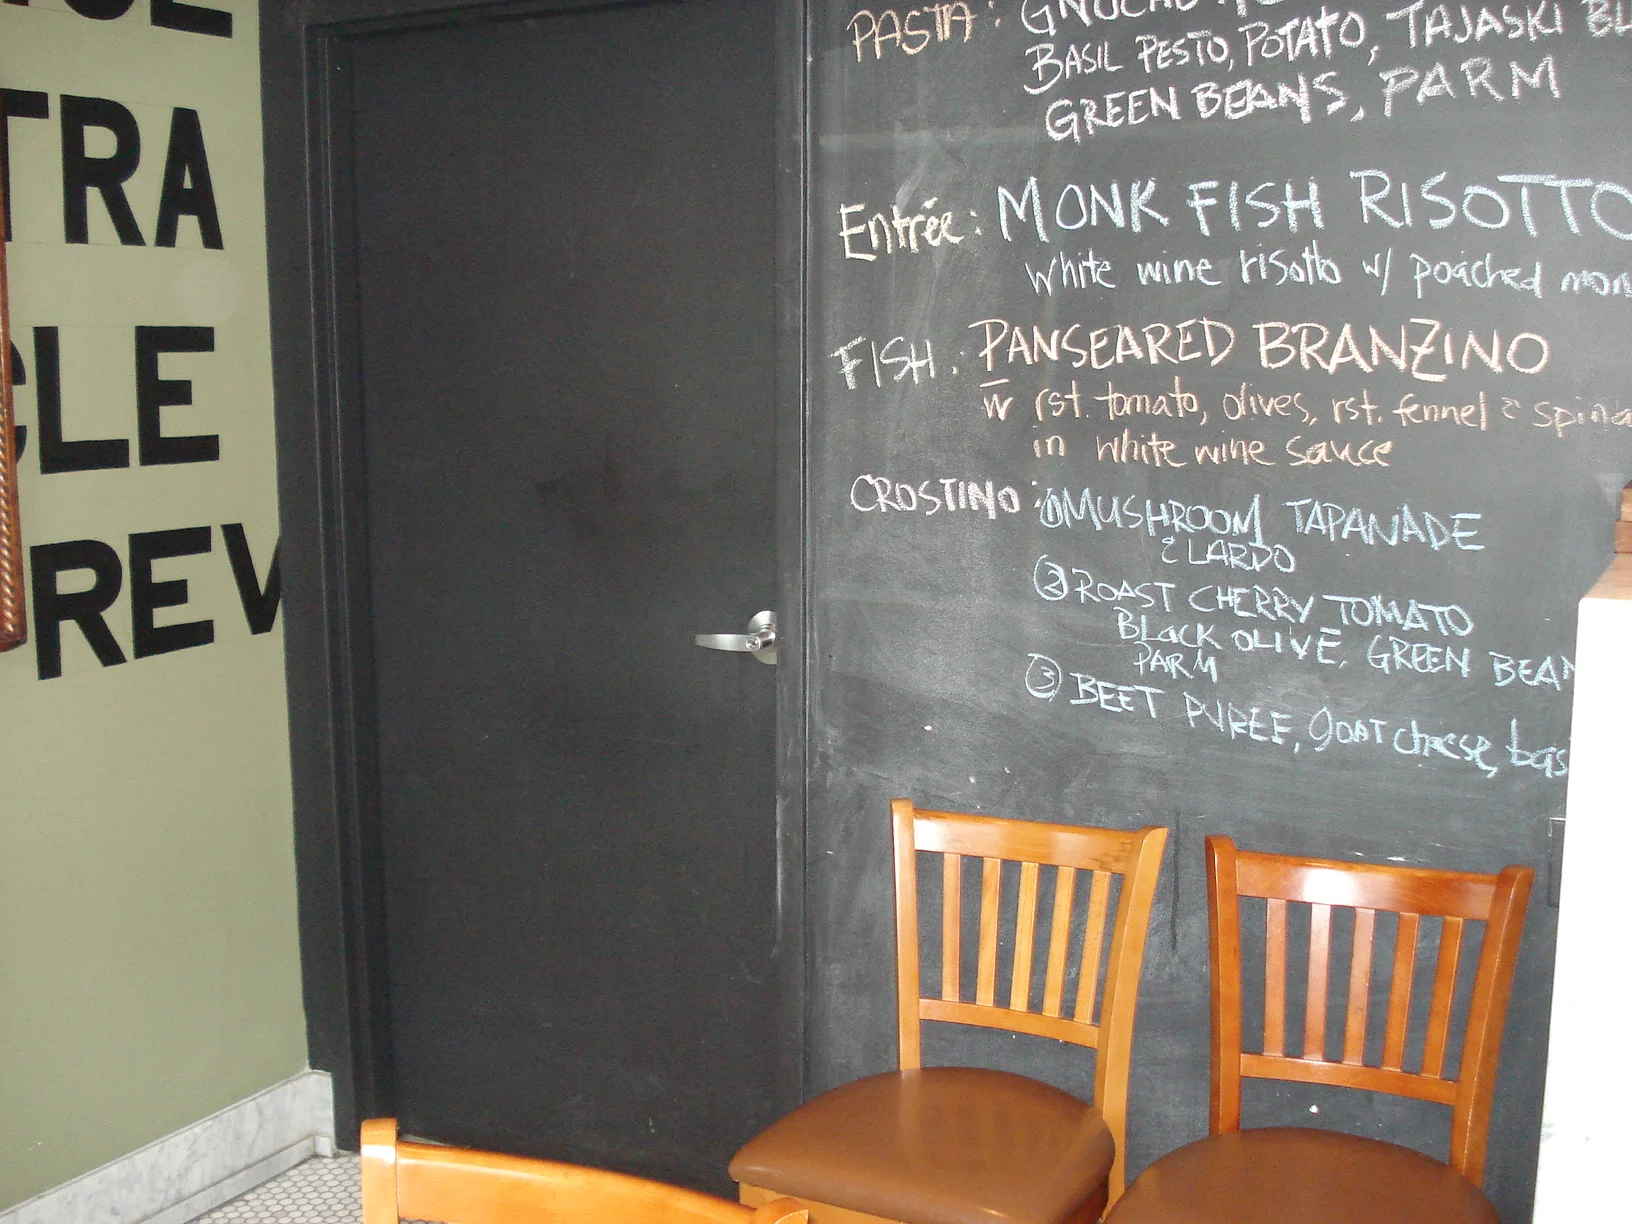 TRA
CLE
REV
PASTA: GNOCCHI
BASIL PESTO, POTATO, TAJASKI BL
GREEN BEANS, PARM
Entrée: MONK FISH RISOTTO
white wine risotto w/ poached mon
FISH: PANSEARED BRANZINO
w rst. tomato, olives, rst. fennel & spina
in white wine sauce
CROSTINO: ① MUSHROOM TAPANADE
& LARDO
② ROAST CHERRY TOMATO
BLACK OLIVE, GREEN BEAN
PARM
③ BEET PUREE, goat cheese, bas